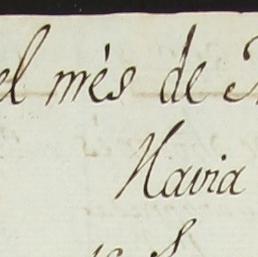 el més de
Navia